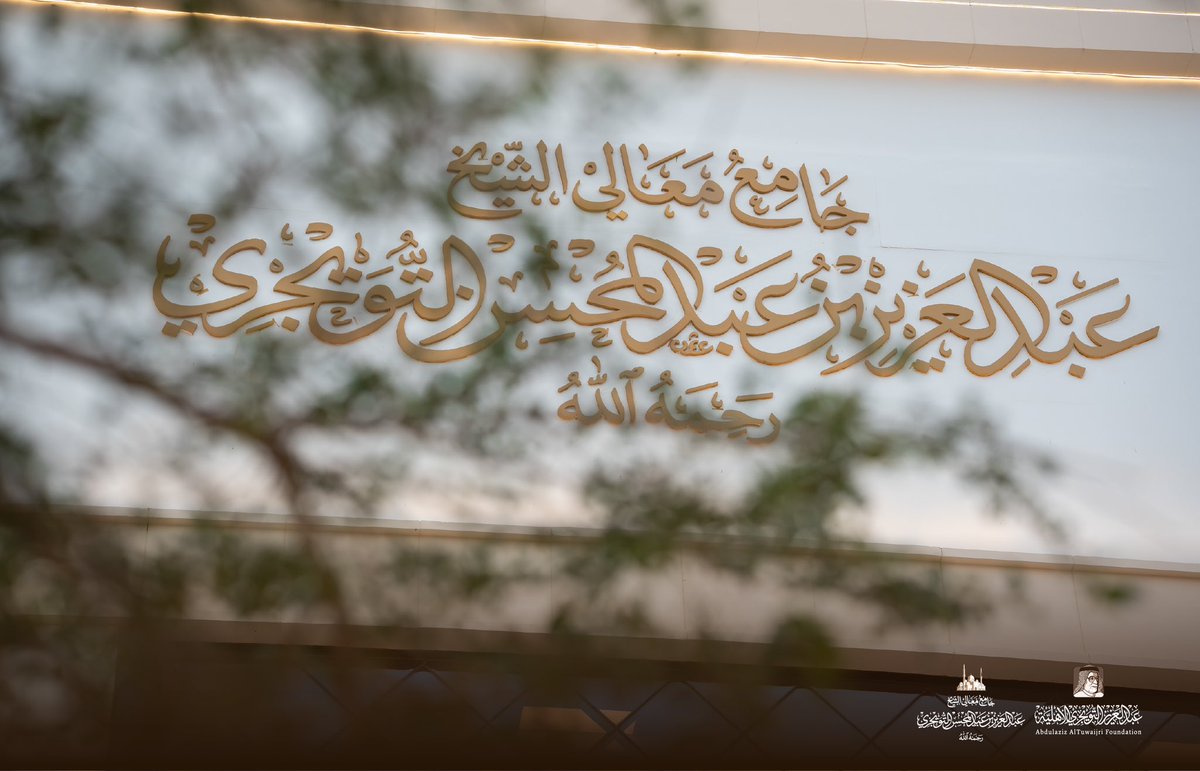 جَامِعُ مَعَالِيْ الشَّيْخِ
عَبْدِالعَزِيْزِ بْنِ عَبْدِالمُحْسِنِ التُّوَيْجْرِيْ
رَحِمَهُ اللهُ
جامع معالي الشيخ
عبدالعزيز بن عبدالمحسن التويجري
رحمه الله
عبدالعزيز التويجري الأهلية
Abdulaziz AlTuwaijri Foundation